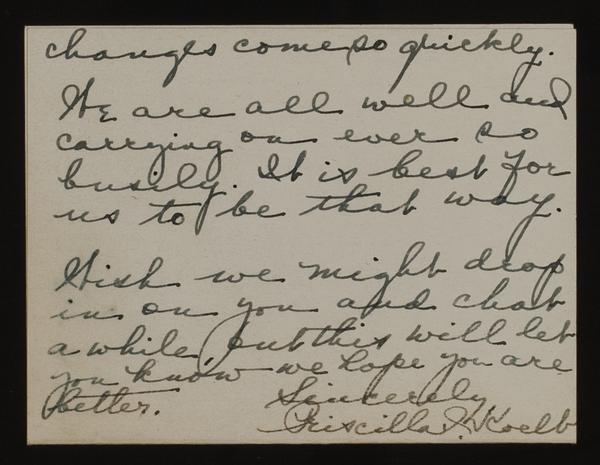 changes come so quickly.
We are all well and
carrying on ever so
busily. It is best for
us to be that way.
Wish we might drop
in on you and chat
a while, but this will let
you know we hope you are
better. Sincerely
Priscilla J. Koelb